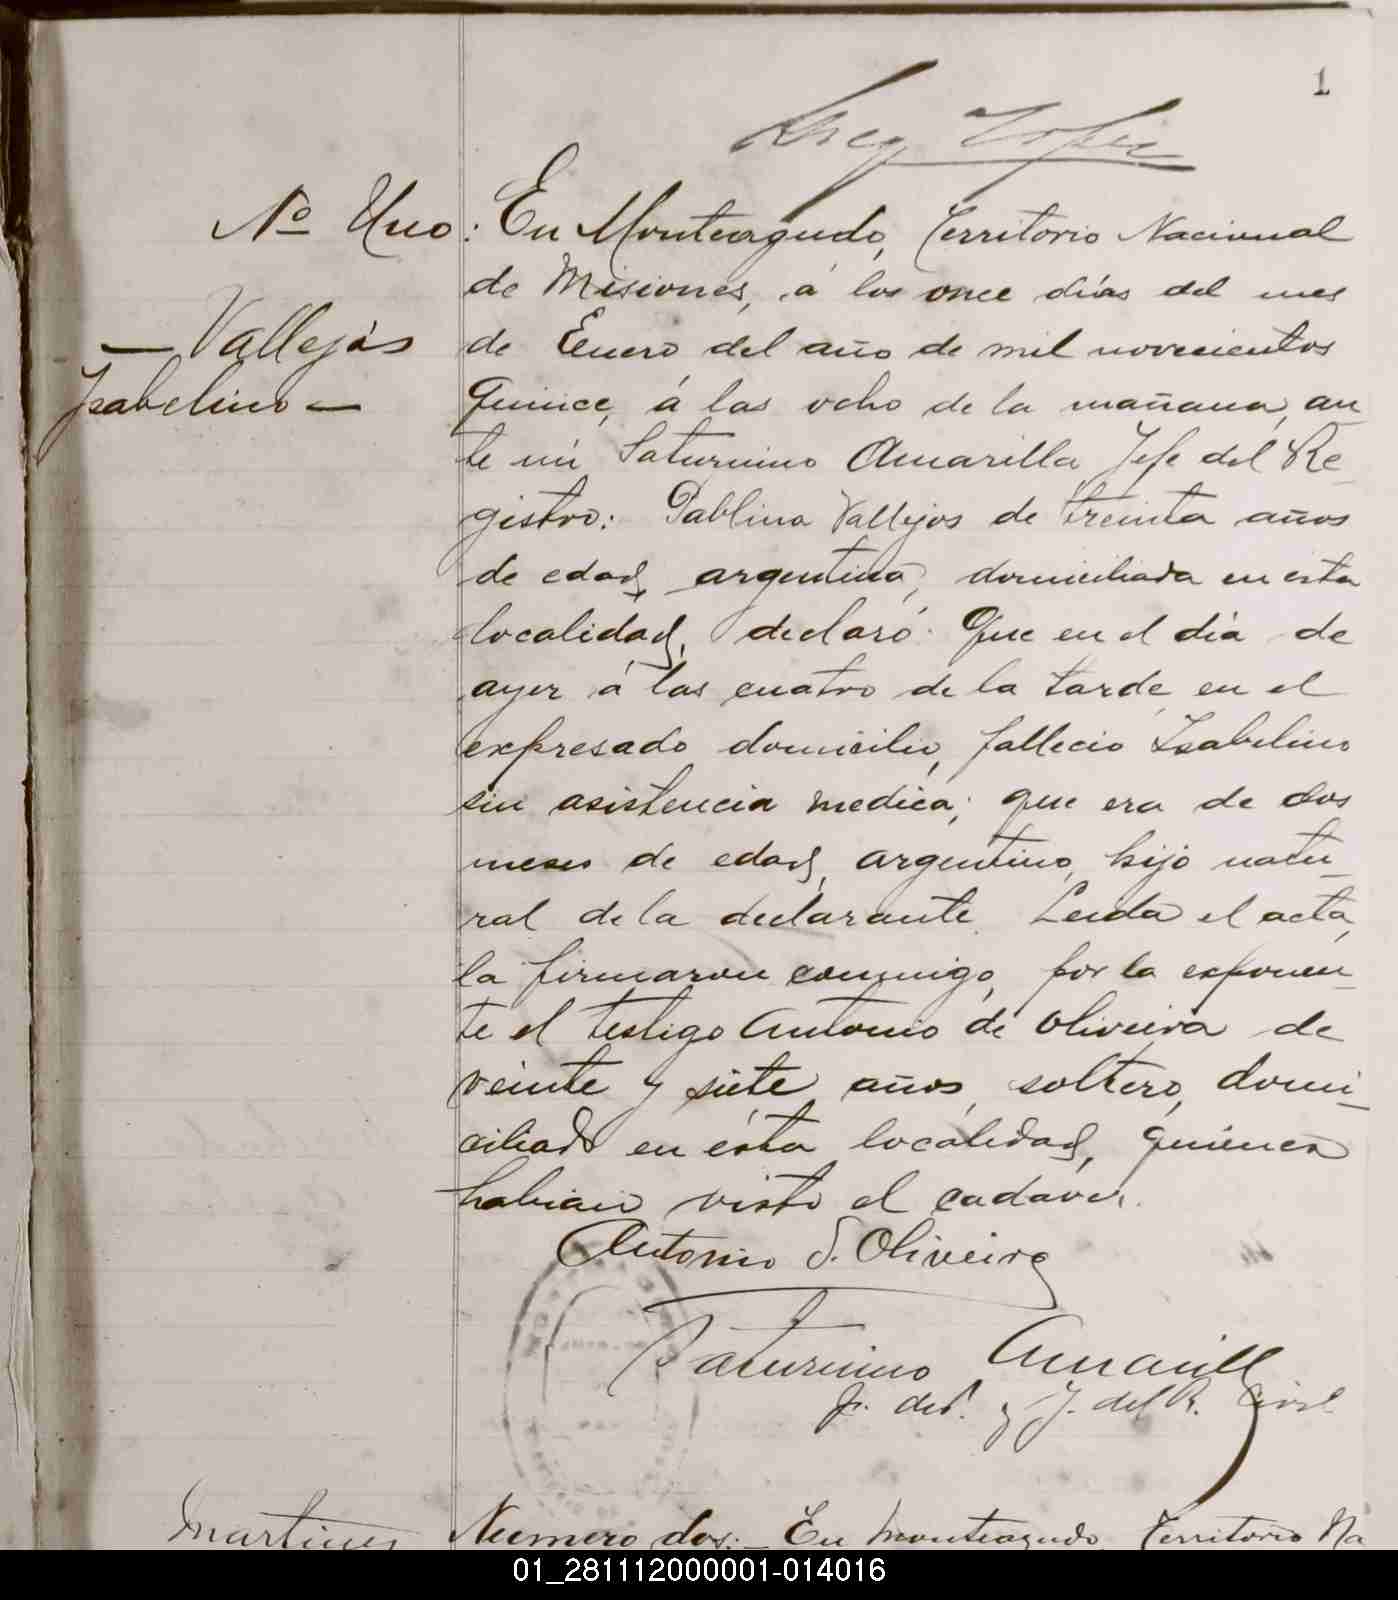 1
Nº Uno: En Monteagudo, Territorio Nacional
de Misiones, á los once días del mes
— Vallejos
Isabelino —
de Enero del año de mil novecientos
Quince, á las ocho de la mañana, an
te mi Saturnino Amarilla Jefe del Re-
gistro: Pablina Vallejos de treinta años
de edad, argentina, domiciliada en esta
localidad, declaró: Que en el día de
ayer á las cuatro de la tarde, en el
expresado domicilio, falleció Isabelino
sin asistencia medica; que era de dos
meses de edad, argentino, hijo natu-
ral de la declarante. Leida el acta,
la firmaron conmigo, por la exponen-
te el testigo Antonio de Oliveira de
veinte y siete años, soltero, domi-
ciliado en ésta localidad, quienes
habian visto el cadaver.
Antonio d. Oliveira
Saturnino Amarill
J. del R. Civil
Martines
Numero dos:— En Monteagudo Territorio Na
01_281112000001-014016